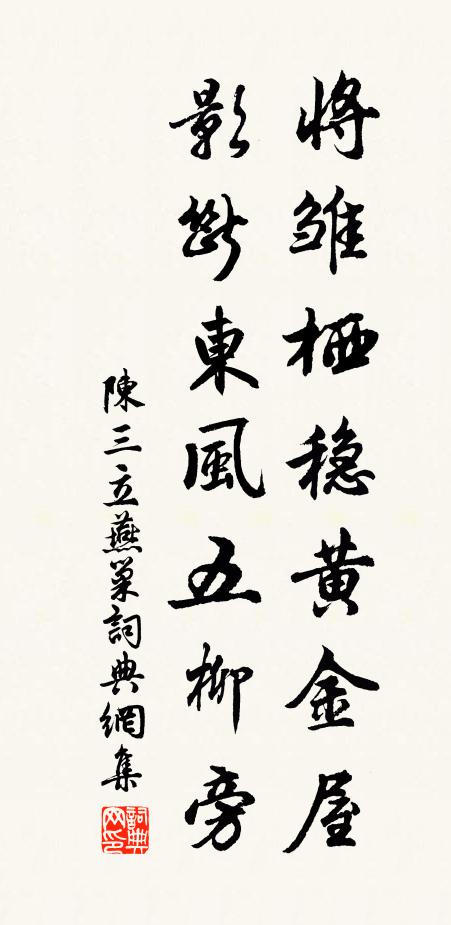 將雛栖穏黃金屋
影斷東風五柳旁
陳三立燕巢詞典網集
詞典网印